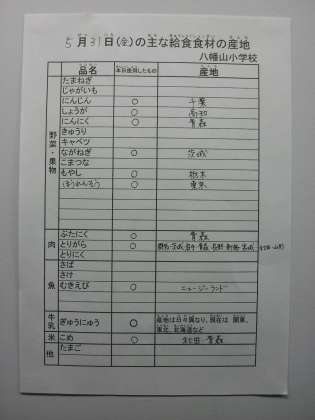 5月31日(金)の主な給食食材の産地
八幡山小学校
品名 本日使用したもの 産地
野菜・果物
たまねぎ
じゃがいも
にんじん ○ 千葉
しょうが ○ 高知
にんにく ○ 青森
きゅうり
キャベツ
ながねぎ ○ 茨城
こまつな
もやし ○ 栃木
ほうれんそう ○ 東京
肉
ぶたにく ○ 青森
とりがら ○
とりにく
魚
さば
さけ
むきえび ○ ニュージーランド
牛乳 ぎゅうにゅう ○ 産地は日々異なり、現在は 関東、
東北、北海道など
米 こめ ○ 秋田 青森
他 たまご